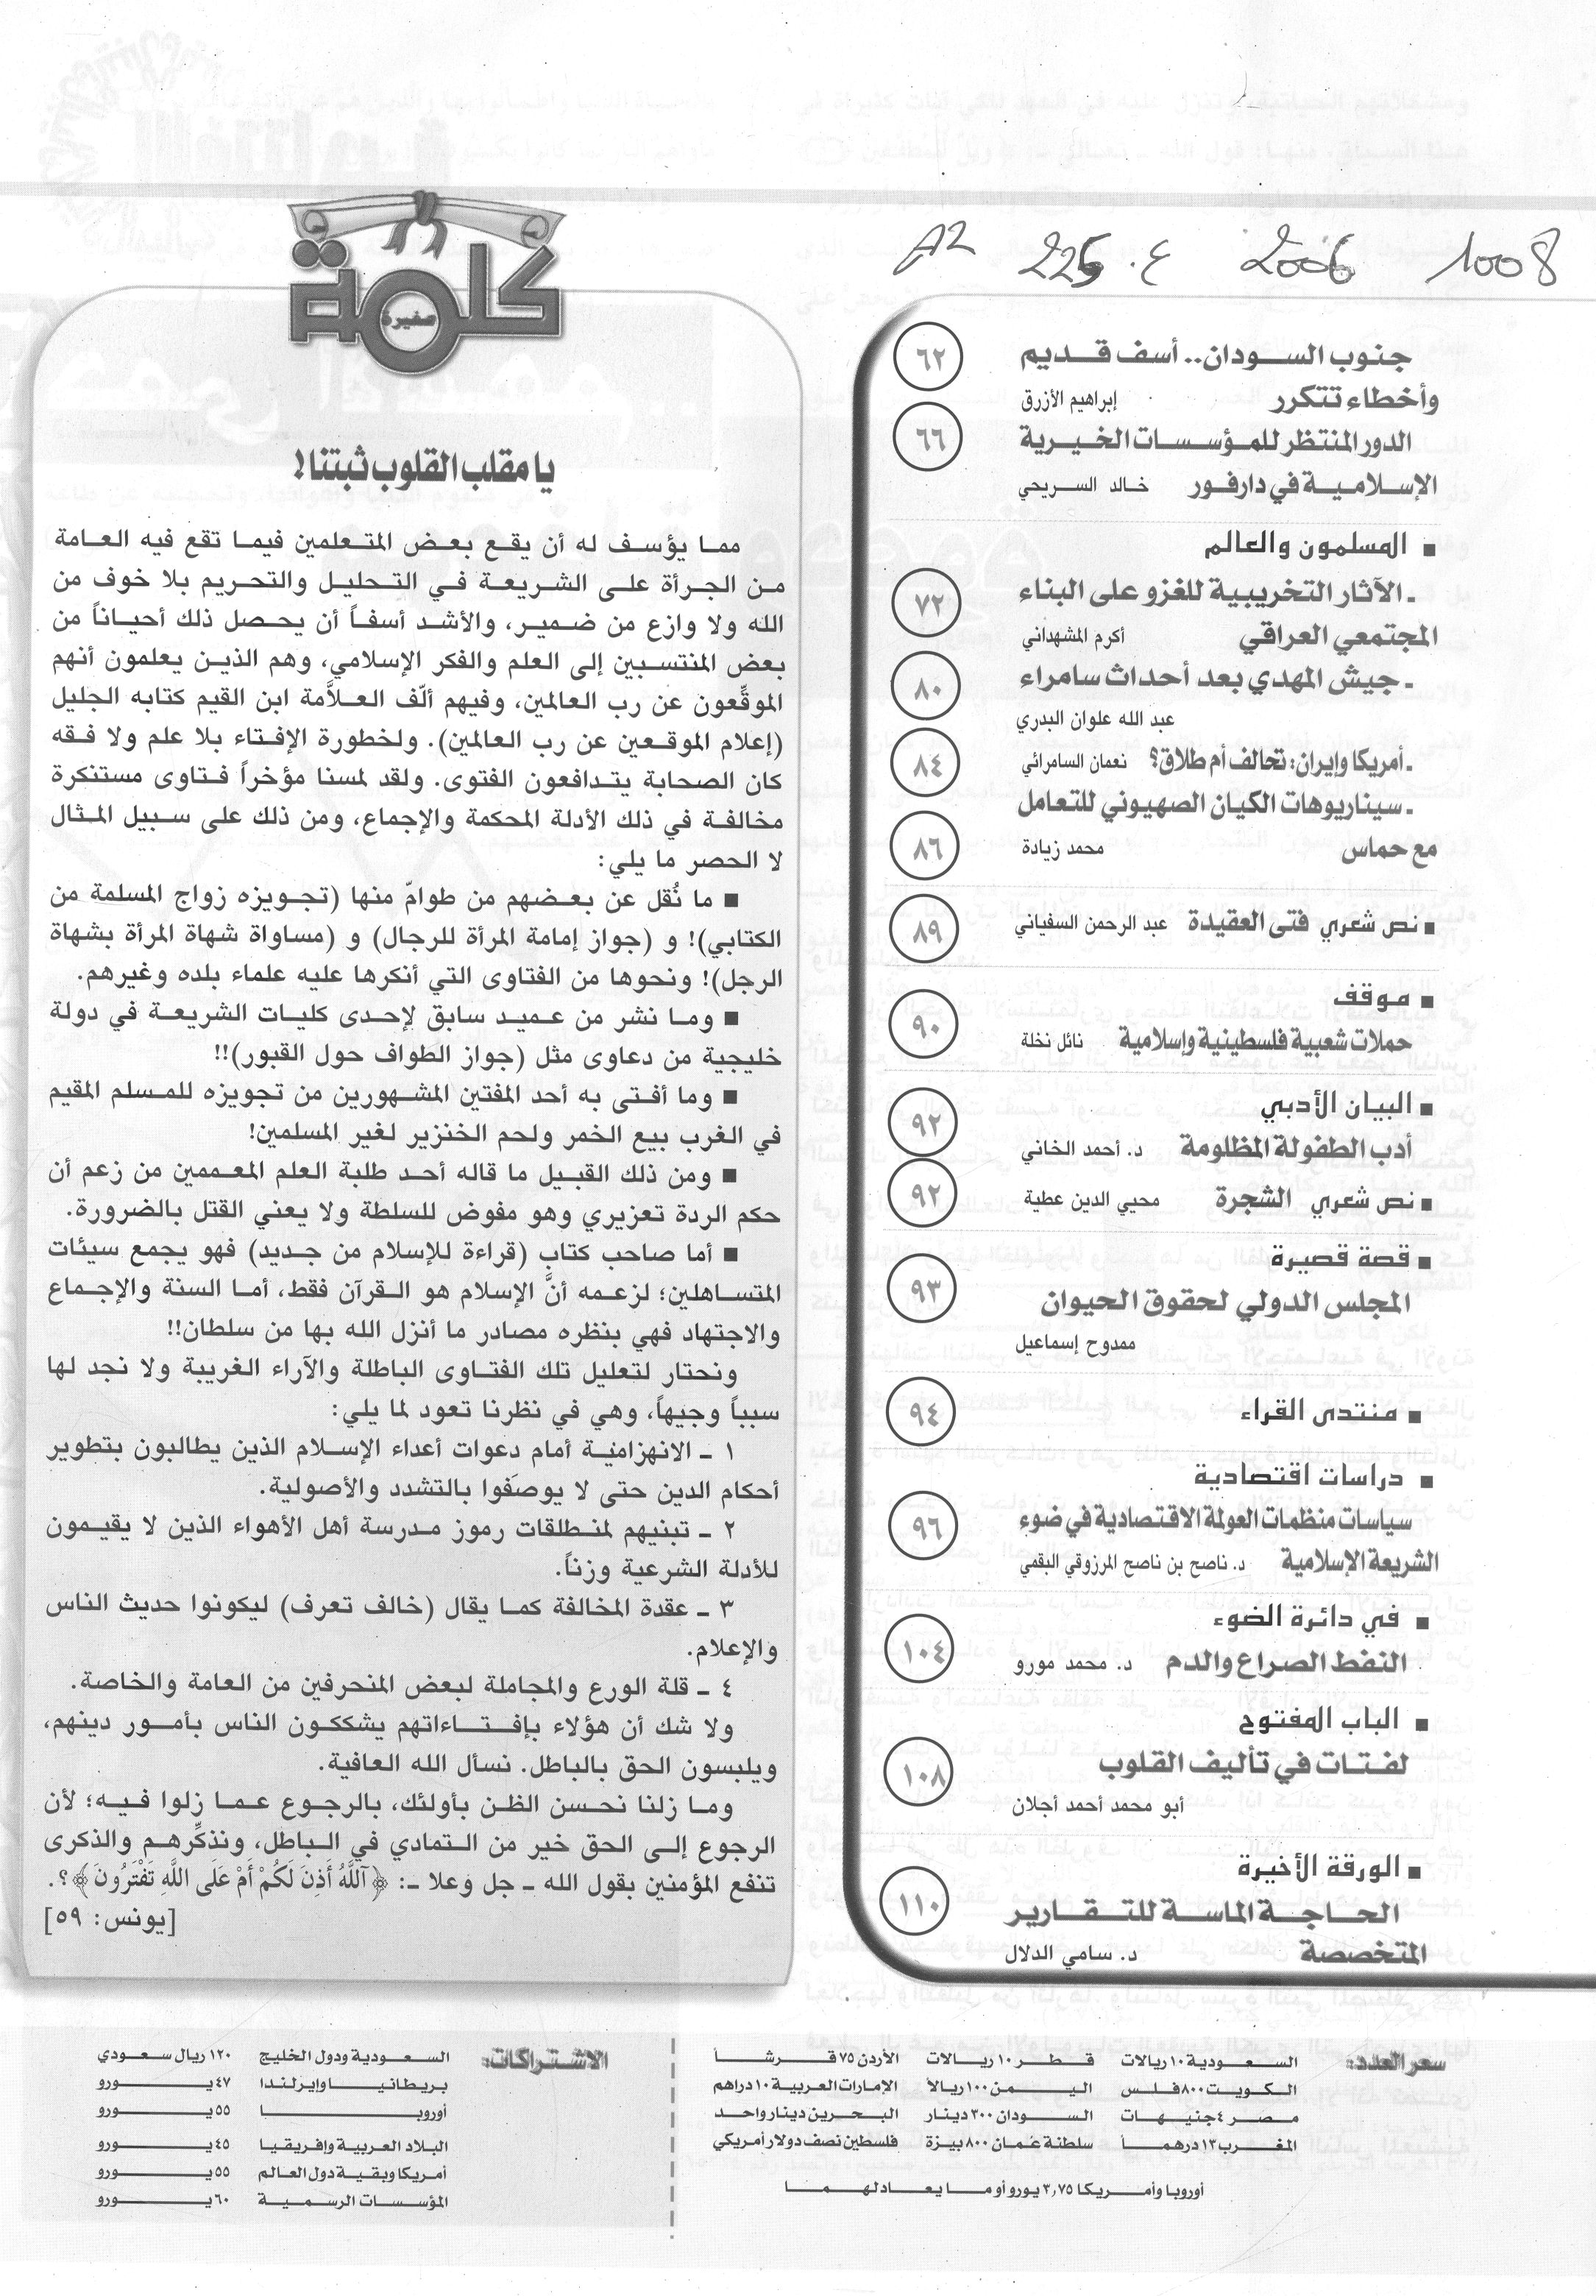 AL 225.ع 2006 1008
جنوب السودان.. أسف قديم ٦٢
وأخطاء تتكرر إبراهيم الأزرق
الدور المنتظر للمؤسسات الخيرية ٦٦
الإسلامية في دارفور خالد السريحي
■ المسلمون والعالم
ـ الآثار التخريبية للغزو على البناء ٧٢
المجتمعي العراقي أكرم المشهداني
ـ جيش المهدي بعد أحداث سامراء ٨٠
عبد الله علوان البدري
ـ أمريكا وإيران: تحالف أم طلاق؟ نعمان السامرائي ٨٤
ـ سيناريوهات الكيان الصهيوني للتعامل
مع حماس محمد زيادة ٨٦
■ نص شعري فتى العقيدة عبد الرحمن السفياني ٨٩
■ موقف
حملات شعبية فلسطينية وإسلامية نائل نخلة ٩٠
■ البيان الأدبي
أدب الطفولة المظلومة د. أحمد الخاني ٩٢
■ نص شعري الشجرة محيي الدين عطية ٩٢
■ قصة قصيرة
المجلس الدولي لحقوق الحيوان ٩٣
ممدوح إسماعيل
■ منتدى القراء ٩٤
■ دراسات اقتصادية
سياسات منظمات العولمة الاقتصادية في ضوء ٩٦
الشريعة الإسلامية د. ناصح بن ناصح المرزوقي البقمي
■ في دائرة الضوء
النفط الصراع والدم د. محمد مورو ١٠٤
■ الباب المفتوح
لفتات في تأليف القلوب ١٠٨
أبو محمد أحمد أجلان
■ الورقة الأخيرة
الحاجة الماسة للتقارير ١١٠
المتخصصة د. سامي الدلال
كلمة
صغيرة
يا مقلب القلوب ثبتنا!
مما يؤسف له أن يقع بعض المتعلمين فيما تقع فيه العامة
من الجرأة على الشريعة في التحليل والتحريم بلا خوف من
الله ولا وازع من ضمير، والأشد أسفاً أن يحصل ذلك أحياناً من
بعض المنتسبين إلى العلم والفكر الإسلامي، وهم الذين يعلمون أنهم
الموقِّعون عن رب العالمين، وفيهم ألّف العلاَّمة ابن القيم كتابه الجليل
(إعلام الموقعين عن رب العالمين). ولخطورة الإفتاء بلا علم ولا فقه
كان الصحابة يتدافعون الفتوى. ولقد لمسنا مؤخراً فتاوى مستنكرة
مخالفة في ذلك الأدلة المحكمة والإجماع، ومن ذلك على سبيل المثال
لا الحصر ما يلي:
■ ما نُقل عن بعضهم من طوامّ منها (تجويزه زواج المسلمة من
الكتابي)! و (جواز إمامة المرأة للرجال) و (مساواة شهاة المرأة بشهاة
الرجل)! ونحوها من الفتاوى التي أنكرها عليه علماء بلده وغيرهم.
■ وما نشر من عميد سابق لإحدى كليات الشريعة في دولة
خليجية من دعاوى مثل (جواز الطواف حول القبور)!!
■ وما أفتى به أحد المفتين المشهورين من تجويزه للمسلم المقيم
في الغرب بيع الخمر ولحم الخنزير لغير المسلمين!
■ ومن ذلك القبيل ما قاله أحد طلبة العلم المعممين من زعم أن
حكم الردة تعزيري وهو مفوض للسلطة ولا يعني القتل بالضرورة.
■ أما صاحب كتاب (قراءة للإسلام من جديد) فهو يجمع سيئات
المتساهلين؛ لزعمه أنَّ الإسلام هو القرآن فقط، أما السنة والإجماع
والاجتهاد فهي بنظره مصادر ما أنزل الله بها من سلطان!!
ونحتار لتعليل تلك الفتاوى الباطلة والآراء الغريبة ولا نجد لها
سبباً وجيهاً، وهي في نظرنا تعود لما يلي:
١ ـ الانهزامية أمام دعوات أعداء الإسلام الذين يطالبون بتطوير
أحكام الدين حتى لا يوصَفوا بالتشدد والأصولية.
٢ ـ تبنيهم لمنطلقات رموز مدرسة أهل الأهواء الذين لا يقيمون
للأدلة الشرعية وزناً.
٣ ـ عقدة المخالفة كما يقال (خالف تعرف) ليكونوا حديث الناس
والإعلام.
٤ ـ قلة الورع والمجاملة لبعض المنحرفين من العامة والخاصة.
ولا شك أن هؤلاء بإفتاءاتهم يشككون الناس بأمور دينهم،
ويلبسون الحق بالباطل. نسأل الله العافية.
وما زلنا نحسن الظن بأولئك، بالرجوع عما زلوا فيه؛ لأن
الرجوع إلى الحق خير من التمادي في الباطل، ونذكِّرهم والذكرى
تنفع المؤمنين بقول الله ـ جل وعلا ـ: ﴿آللَّهُ أَذِنَ لَكُمْ أَمْ عَلَى اللَّهِ تَفْتَرُونَ﴾؟.
[يونس: ٥٩]
سعر العدد:
السعودية ١٠ ريالات قطر ١٠ ريالات الأردن ٧٥ قرشاً
الكويت ٨٠٠ فلس اليمن ١٠٠ ريالاً الإمارات العربية ١٠ دراهم
مصر ٤ جنيهات السودان ٣٠٠ دينار البحرين دينار واحد
المغرب ١٣ درهماً سلطنة عمان ٨٠٠ بيزة فلسطين نصف دولار أمريكي
أوروبا وأمريكا ٣,٧٥ يورو أو ما يعادلهما
الاشتراكات:
السعودية ودول الخليج ١٢٠ ريال سعودي
بريطانيا وإيرلندا ٤٧ يورو
أوروبا ٥٥ يورو
البلاد العربية وإفريقيا ٤٥ يورو
أمريكا وبقية دول العالم ٥٥ يورو
المؤسسات الرسمية ٦٠ يورو